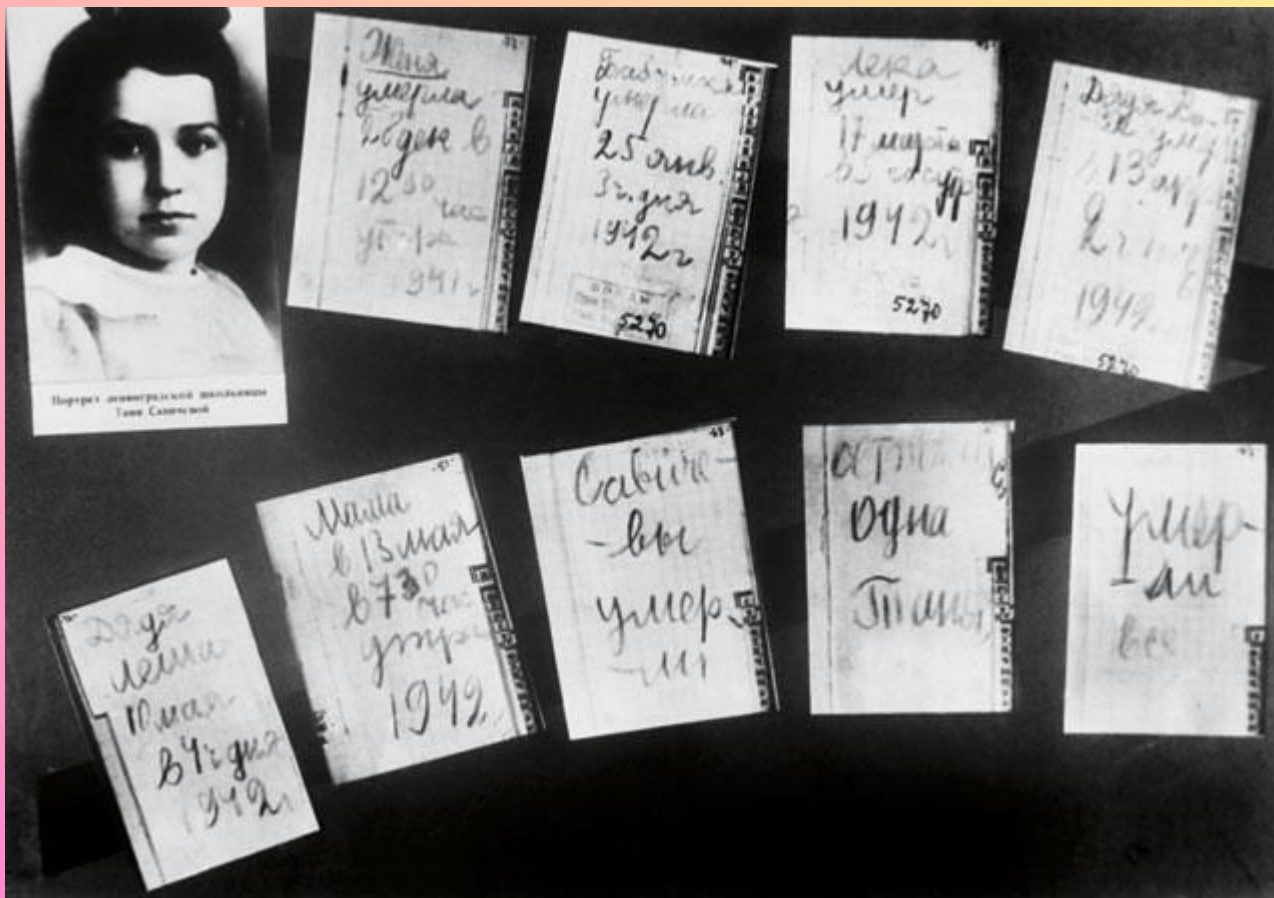 Портрет ленинградской школьницы
Тани Савичевой
Женя
умерла
28 дек в
12 30
час
утра
1941 г
Бабушка
умерла
25 янв.
3 ч. дня
1942 г
5270
Лека
умер
17 марта
в 5 часутр
1942 г
5270
Дядя Ва-
ся умер
в 13 апр
2 ч ноч
1942
5270
Дядя
Леша
10 мая
в 4 ч дня
1942 г
Мама
в 13 мая
в 7 30
час
утра
1942
Савиче-
-вы
умер
-ли
одна
Таня
умер-
-ли
все